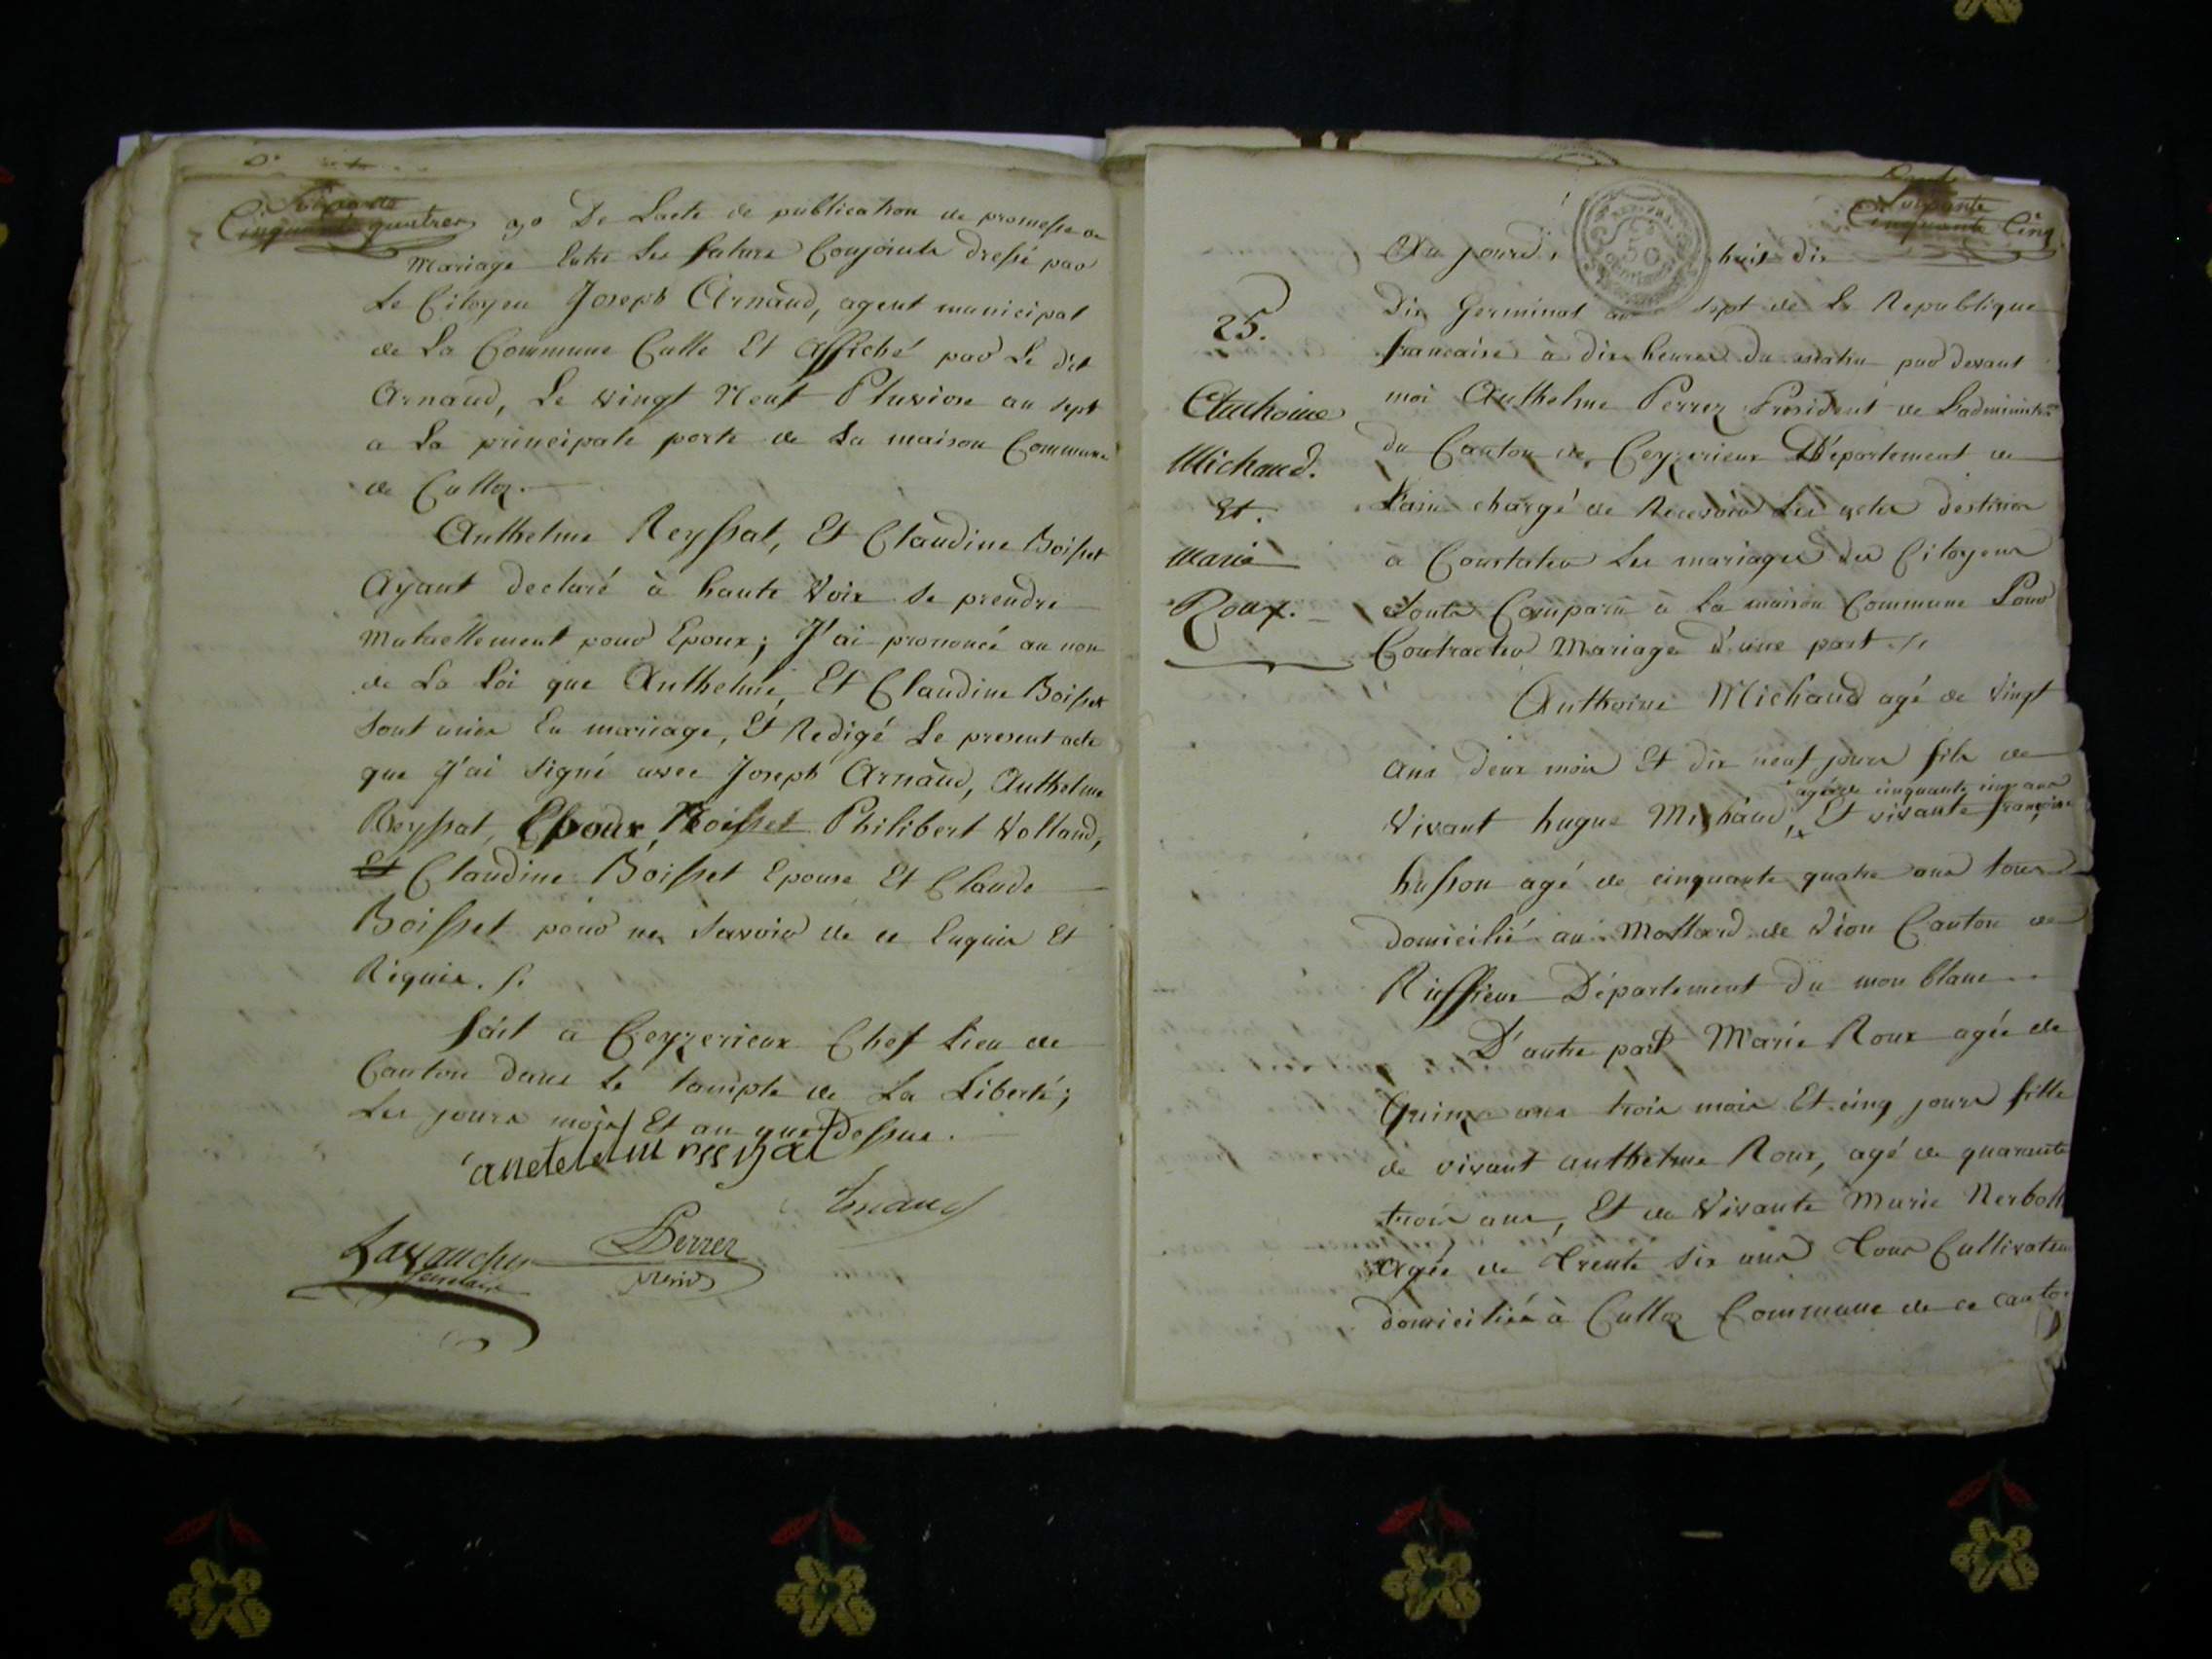 Soixante
Cinquante quatrer
3o De Lacte de publication de promesse de
Mariage Entre Les futurs Conjoints dressé par
Le Citoyen Joseph Arnaud, agent municipal
de La Commune Culle Et affiché par Le dit
Arnaud, Le vingt Neuf Pluviose an sept
a La principale porte de La maison Commune
de Culloz.
Anthelme Reyssat, Et Claudine Boisset
Ayant declaré à haute Voix se prendre
Mutuellement pour Epoux; J'ai prononcé au nom
de La Loi que Anthelme, Et Claudine Boisset
sont unis En mariage, Et Redigé Le present acte
que J'ai signé avec Joseph Arnaud, Anthelme
Reyssat, Epoux, Boisset Philibert Volland,
Et Claudine Boisset Epouse Et Claude
Boisset pour ne Savoir de ce Enquis Et
Réquis. /.
fait a Ceyzerieux Chef Lieu de
Canton dans Le temple de La Liberté;
Les jours mois Et an que Dessus.
Arnaud
Perrez
presid
secretaire
Soixante
Cinquante Cinq
25.
Anthoine
Michaud.
Et.
Marie
Roux.
Au jourd'huit dix
Dix Germinal an sept de La Republique
francaise à dix heures du matin par devant
moi Anthelme Perrez President de Ladministon
du Canton de Ceyzerieux Département de
Lain chargé de Recevoir Les actes destinés
à Constater Les mariages des Citoyens
sont Comparu à La maison Commune Pour
Contracter Mariage d'une part /.
Anthoine Michaud agé de Vingt
ans deux mois Et dix neuf jours fils de
agé de cinquante cinq ans
Vivant hugue Michaud, Et vivante françoise
husson agé de cinquante quatre ans tous
domicilié au Mollard de Vion Canton de
Rieffieux Département du mon blanc
D'autre part Marie Roux agée de
Quinze ans trois mois Et cinq jours fille
de vivant anthelme Roux, agé de quarante
trois ans, Et de Vivante Marie Nerboll
Agée de Trente six ans Tous Cultivateur
domiciliés à Culloz Commune de ce canton